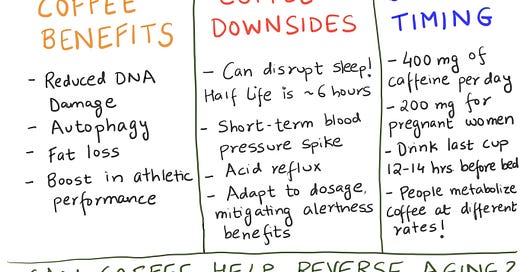 COFFEE
BENEFITS
- Reduced DNA
Damage
- Autophagy
- Fat loss
- Boost in athletic
performance
COFFEE
DOWNSIDES
- Can disrupt sleep!
Half Life is ~6 hours
- Short-term blood
pressure spike
- Acid reflux
- Adapt to dosage,
mitigating alertness
benefits
TIMING
- 400 mg of
caffeine per day
- 200 mg for
pregnant women
- Drink last cup
12-14 hrs before bed
- People metabolize
coffee at different
rates!
CAN COFFEE HELP REVERSE AGING?